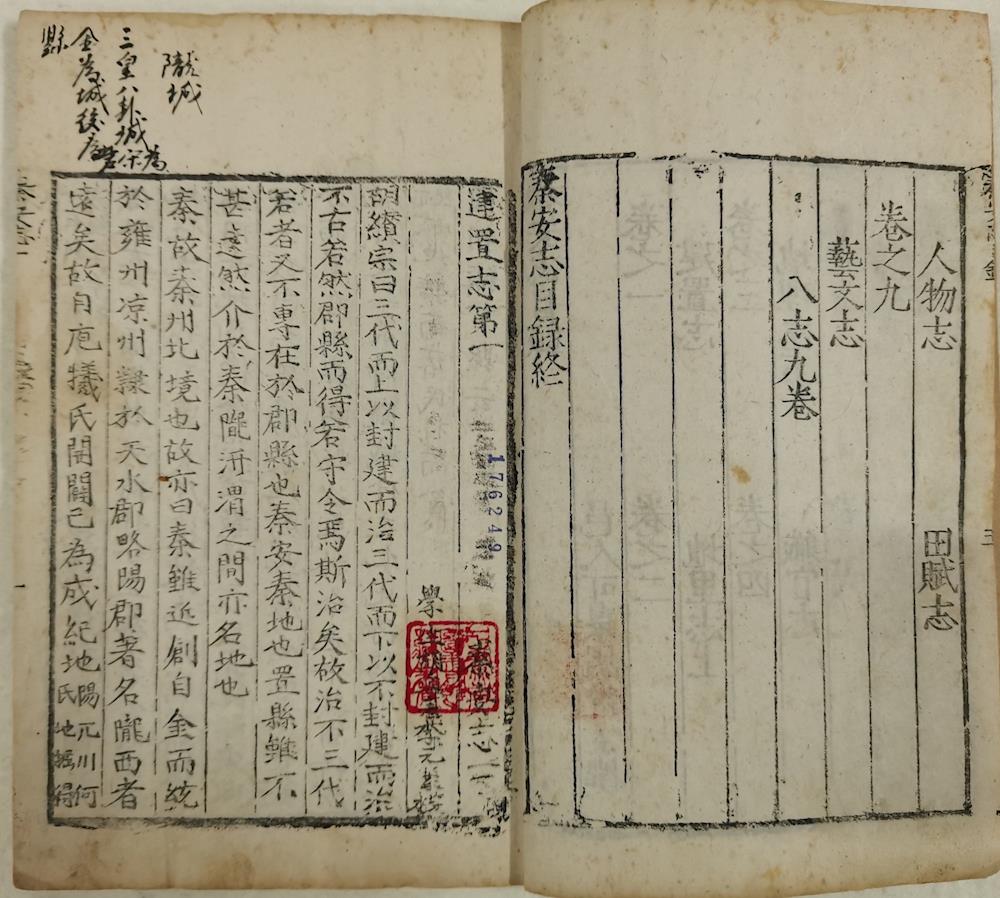 人物志 田賦志
卷之九
藝文志
八志九卷
秦安志目録終
建置志第一 秦安志一
176249
學
胡纘宗曰三代而上以封建而治三代而下以不封建而治
不古若然郡縣而得若守令焉斯治矣故治不三代
若者又不專在於郡縣也秦安秦地也置縣雖不
甚遠然介於秦隴汧渭之間亦名地也
秦故秦州北境也故亦曰秦雖近創自金而統
於雍州凉州隸於天水郡略陽郡著名隴西者
遠矣故自庖犧氏開闢已為成紀地
陽兀川何
氏地掘得
隴城
三皇八卦城
金為城後
縣